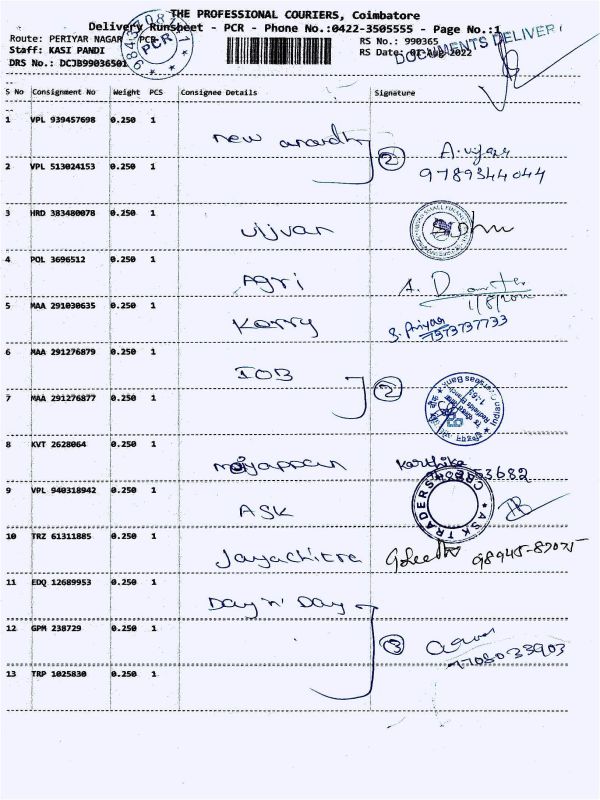 THE PROFESSIONAL COURIERS, Coimbatore
Delivery Runsheet - PCR - Phone No.:0422-3505555 - Page No.:1
Route: PERIYAR NAGAR - PCR
RS No.: 990365
Staff: KASI PANDI
RS Date: 01-Aug-2022
DRS No.: DCJB99036501
PCR
DOCUMENTS DELIVERY
S No Consignment No Weight PCS Consignee Details Signature
1 VPL 939457698 0.250 1 new anandh
2 A. vijaya
2 VPL 513024153 0.250 1 9789344044
3 HRD 383480078 0.250 1 ujjivan
4 POL 3696512 0.250 1 Agri A.
5 MAA 291030635 0.250 1 Karry S. Priyaa
7373737733
6 MAA 291276879 0.250 1 IOB
2
7 MAA 291276877 0.250 1
Indian Overseas Bank
8 KVT 2628064 0.250 1 meyappan Karthika
9 VPL 940318942 0.250 1 ASK
ASK TRADERS
10 TRZ 61311885 0.250 1 Jayachitra
11 EDQ 12689953 0.250 1 Day n' Day
12 GPM 238729 0.250 1
3
13 TRP 1025830 0.250 1